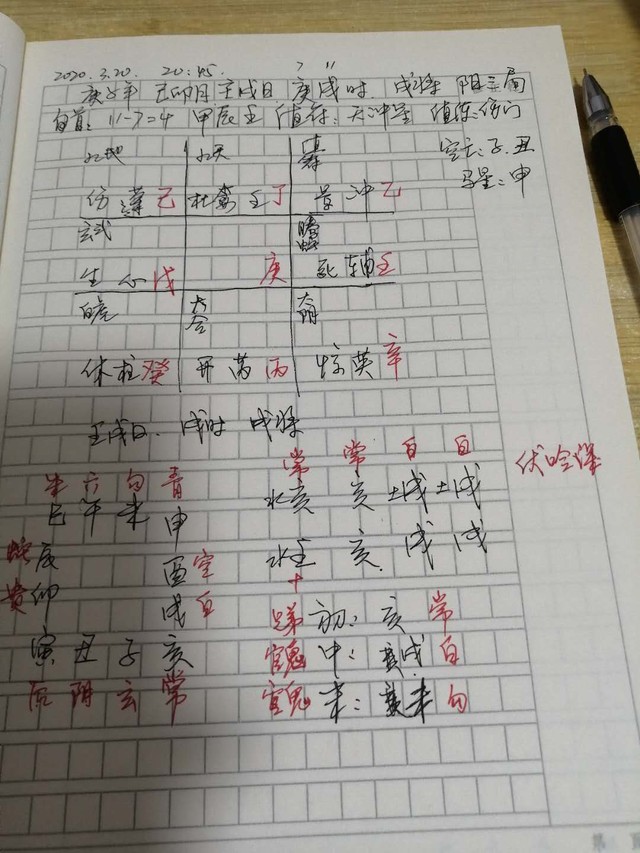 2020.3.20. 20:45.
7 11
庚子年 己卯月 壬戌日 庚戌时. 戌将 阳三局
旬首: 11-7=4 甲辰壬 值符: 天冲星 值使: 伤门
九地 九天 值符 空亡: 子.丑
马星: 申
伤 蓬 己 杜 壬 丁 景 冲 乙
玄武
生 心 戊 庚 死 辅 壬
白虎 六合 太阴
休 柱 癸 开 芮 丙 惊 英 辛
壬戌日. 戌时 戌将
朱 六 勾 青 常 常 白 白 伏吟课
巳 午 未 申 水亥 亥 土戌 土戌
辰 酉 空 水壬 亥. 戌 戌
贵 卯 戌 白 兄弟 初: 亥 常
寅 丑 子 亥 官鬼 中: 戌 白
后 阴 玄 常 官鬼 末: 未 勾